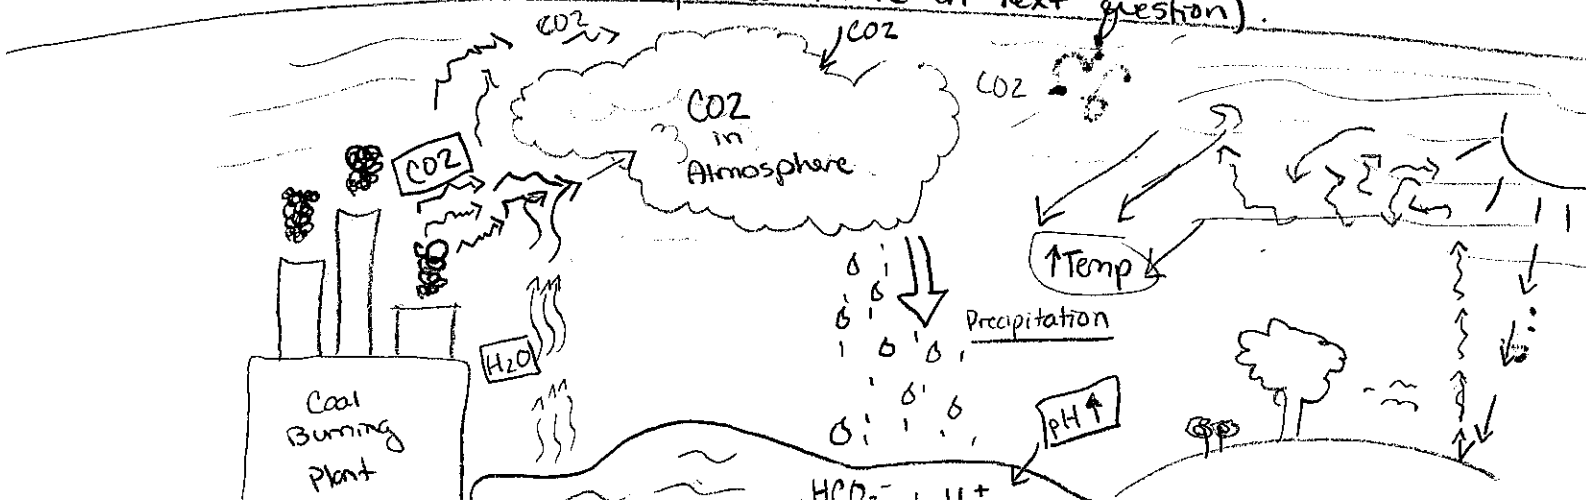 in text question).
CO2
CO2
CO2
CO2
CO2
in
Atmosphere
↑Temp
Precipitation
H2O
pH↑
Coal
Burning
Plant
HCO3- + H+